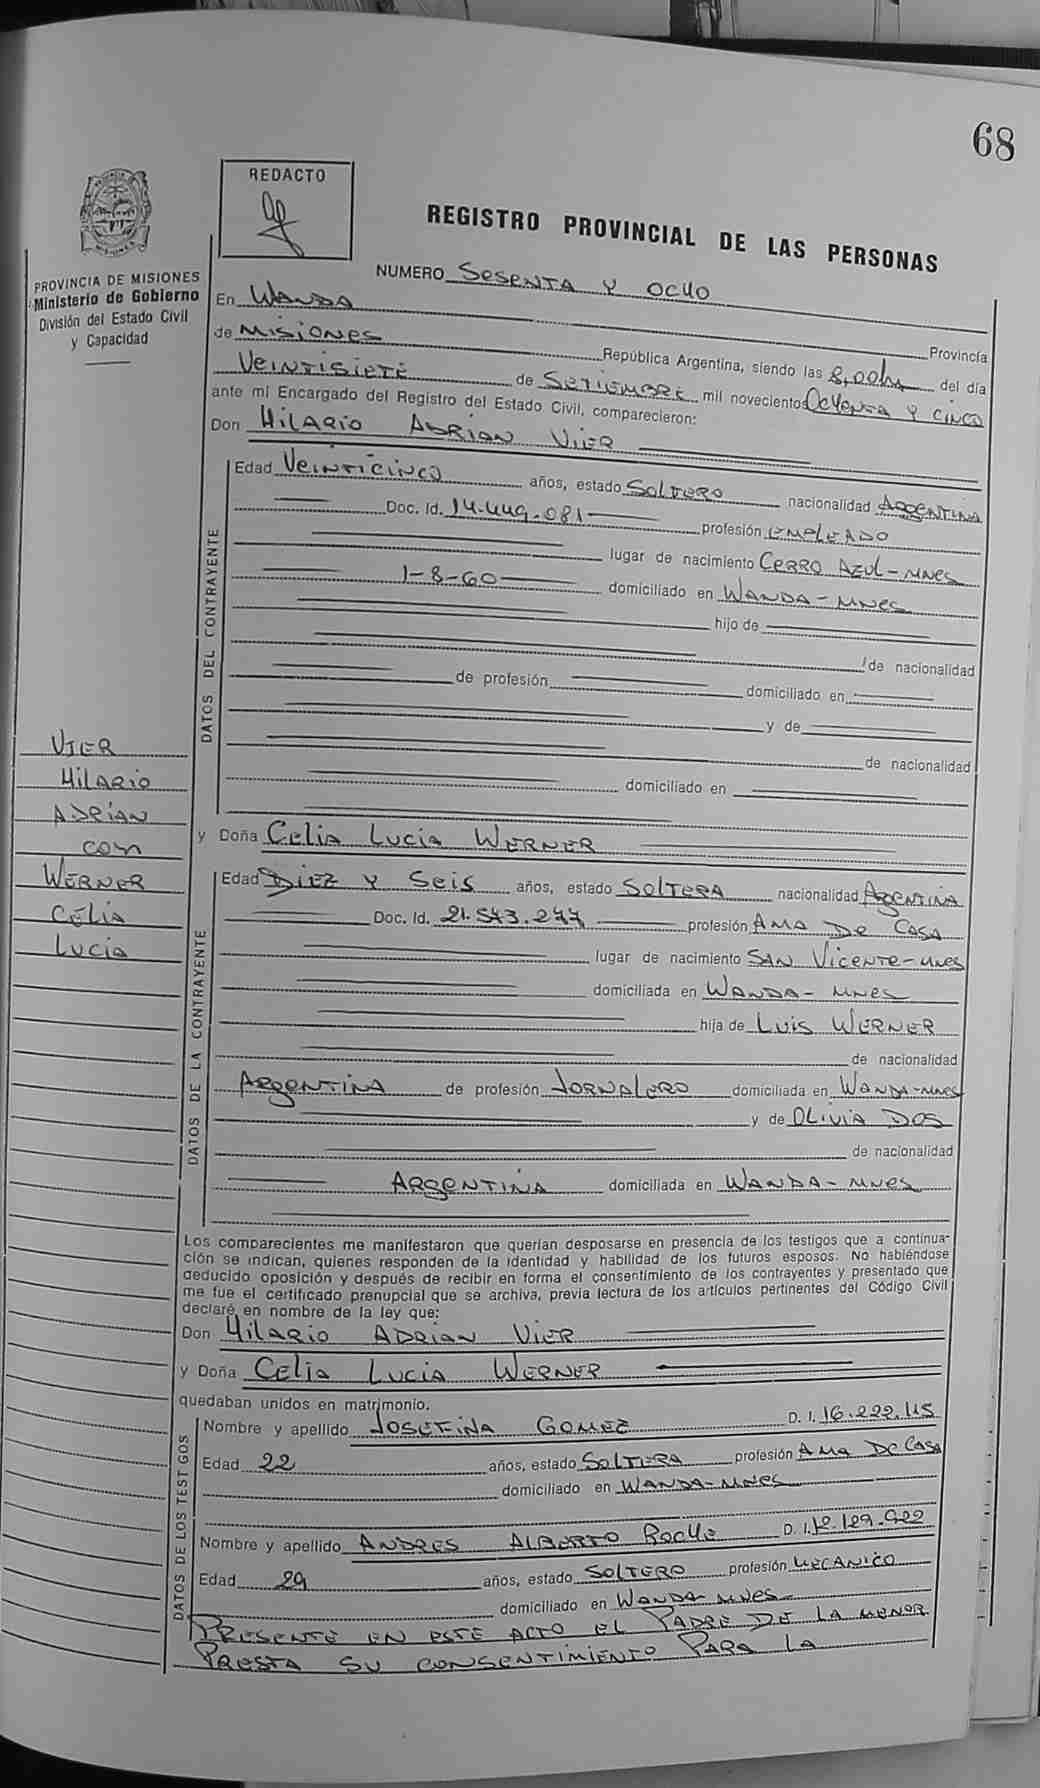 68
REDACTO
REGISTRO PROVINCIAL DE LAS PERSONAS
PROVINCIA DE MISIONES
Ministerio de Gobierno
División del Estado Civil
y Capacidad
NUMERO SESENTA Y OCHO
En WANDA Provincia
de MISIONES República Argentina, siendo las 8,00hs del día
VEINTISIETE de SETIEMBRE mil novecientos OCHENTA Y CINCO
ante mi Encargado del Registro del Estado Civil, comparecieron:
Don HILARIO ADRIAN VIER
DATOS DEL CONTRAYENTE
Edad VEINTICINCO años, estado SOLTERO nacionalidad ARGENTINA
Doc. Id. 14.449.081 profesión EMPLEADO
lugar de nacimiento CERRO AZUL-MNES
1-8-60 domiciliado en WANDA-MNES
hijo de
de nacionalidad
de profesión domiciliado en
y de
de nacionalidad
domiciliado en
VIER
HILARIO
ADRIAN
CON
WERNER
CELIA
LUCIA
y Doña CELIA LUCIA WERNER
DATOS DE LA CONTRAYENTE
Edad DIEZ Y SEIS años, estado SOLTERA nacionalidad ARGENTINA
Doc. Id. 21.543.277 profesión AMA DE CASA
lugar de nacimiento SAN VICENTE-MNES
domiciliada en WANDA-MNES
hija de LUIS WERNER
de nacionalidad
ARGENTINA de profesión JORNALERO domiciliada en WANDA-MNES
y de OLIVIA DOS
de nacionalidad
ARGENTINA domiciliada en WANDA-MNES
Los comparecientes me manifestaron que querían desposarse en presencia de los testigos que a continua-
ción se indican, quienes responden de la identidad y habilidad de los futuros esposos. No habiéndose
deducido oposición y después de recibir en forma el consentimiento de los contrayentes y presentado que
me fue el certificado prenupcial que se archiva, previa lectura de los artículos pertinentes del Código Civil
declaré en nombre de la ley que:
Don HILARIO ADRIAN VIER
y Doña CELIA LUCIA WERNER
quedaban unidos en matrimonio.
DATOS DE LOS TESTIGOS
Nombre y apellido JOSEFINA GOMEZ D. I. 16.222.115
Edad 22 años, estado SOLTERA profesión AMA DE CASA
domiciliado en WANDA-MNES
Nombre y apellido ANDRES ALBERTO D. I. 12.129.922
Edad 29 años, estado SOLTERO profesión MECANICO
domiciliado en WANDA-MNES
PRESENTE EN ESTE ACTO EL PADRE DE LA MENOR
PRESTA SU CONSENTIMIENTO PARA LA